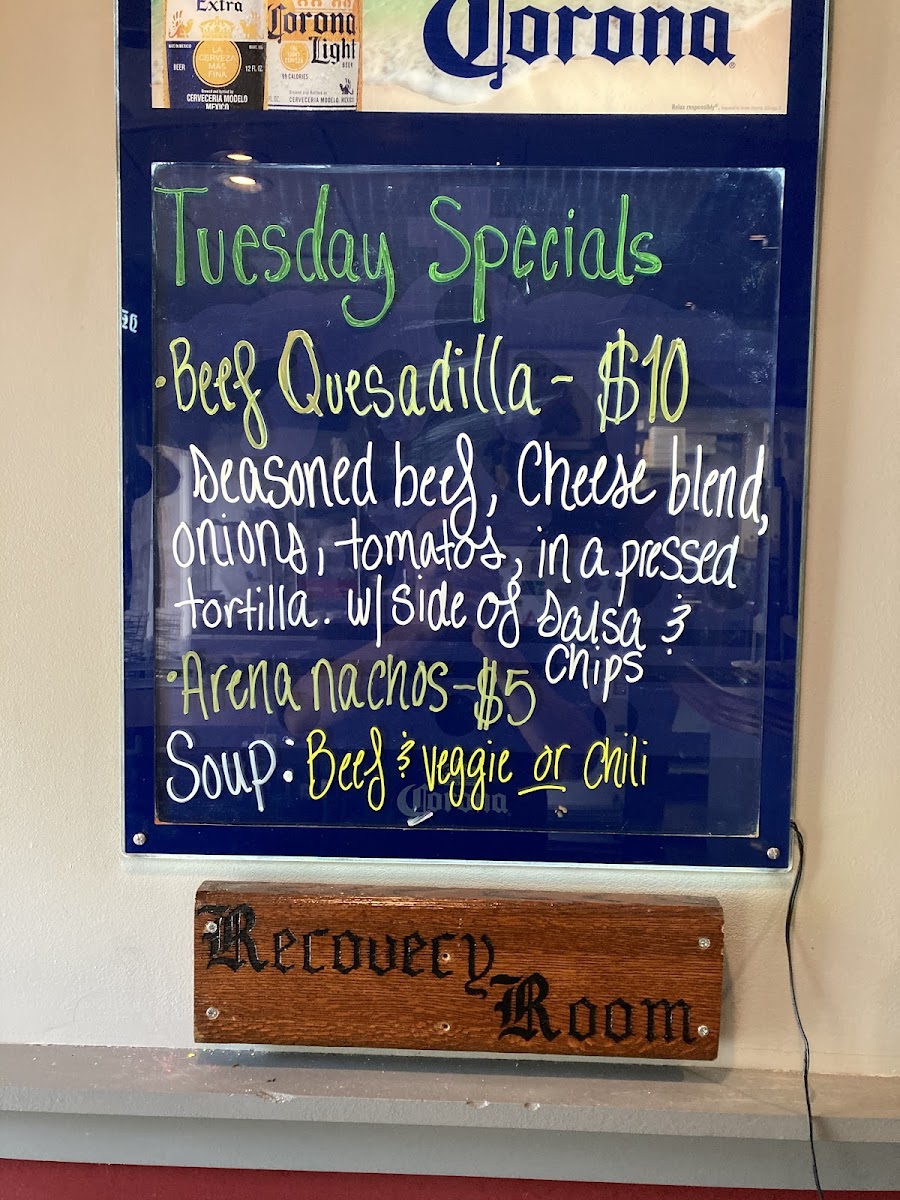 Extra
Corona
Light
BEER
LA
CERVEZA
MAS
FINA
BEER
12 FL. OZ.
99 CALORIES
CERVECERIA MODELO
MEXICO
CERVECERIA MODELO, MEXICO
Corona
Relax responsibly
Tuesday Specials
•Beef Quesadilla - $10
seasoned beef, Cheese blend,
onions, tomatos, in a pressed
tortilla. w/ side of salsa &
Chips
•Arena nachos - $5
Soup: Beef & veggie or chili
Corona
Recovery
Room